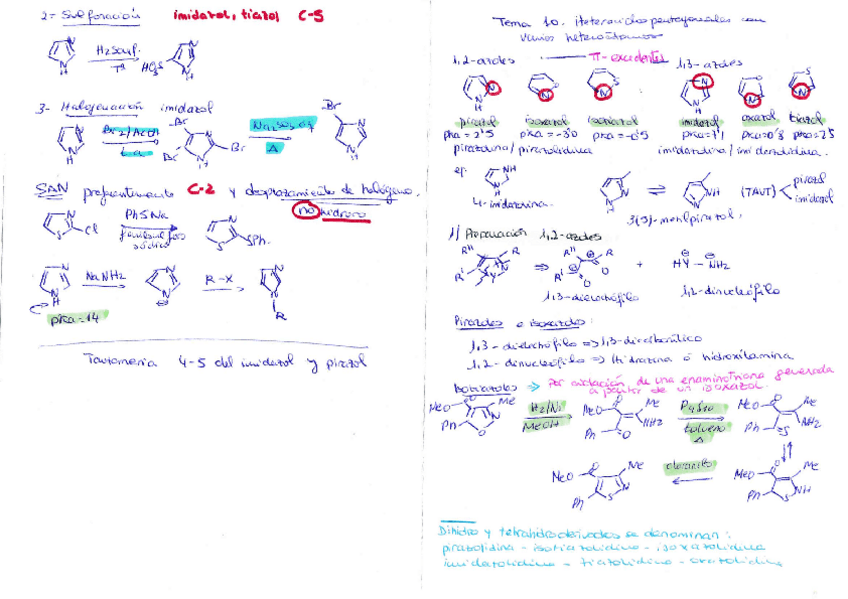 2= Sulfonación imidazol, tiazol C-5
H2SO4 conc.
Tª
HO3S
3- Halogenación imidazol
Br2/AcOH
t.a
Br
Br
Br
Na2SO3, aq
Δ
Br
SAN preferentemente C-2 y desplazamiento de halógeno,
no hidruro
Cl
PhSNa
SPh.
NaNH2
R-X
R
pka=14
Tautomeria 4-5 del imidazol y pirazol
Tema 10. Heterociclos pentagonales con
varios heteroátomos
1,2-azoles
π-excedentes
1,3-azoles
pirazol isoxazol isotiazol imidazol oxazol tiazol
pka=2'5 pka=-3'0 pka=-0'5 pka=7'1 pka=0'8 pka=2'5
pirazolina/pirazolidina imidazolina/imidazolidina.
ej:
4-imidazolina.
(TAUT) pirazol
imidazol
3(5)-metilpirazol.
1) Preparación 1,2-azoles
1,3-dielectrófilo
1,2-dinucleófilo
HY - NH2
Pirazoles e isoxazoles:
1,3-dielectrófilo => 1,3-dicarbonílico
1,2-dinucleófilo => Hidrazina o hidroxilamina
Isotiazoles => Por oxidación de una enaminotiona generada
a partir de un isoxazol.
MeO Me
Ph
H2/Ni
MeOH
MeO Me
NH2
Ph
P4S10
tolueno
Δ
MeO Me
NH2
Ph
MeO Me
Ph
cloranilo
MeO Me
Ph
NH
Dihidro y tetrahidroderivados se denominan:
pirazolidina - isotiazolidina - isoxazolidina
imidazolidina - tiazolidina - oxazolidina